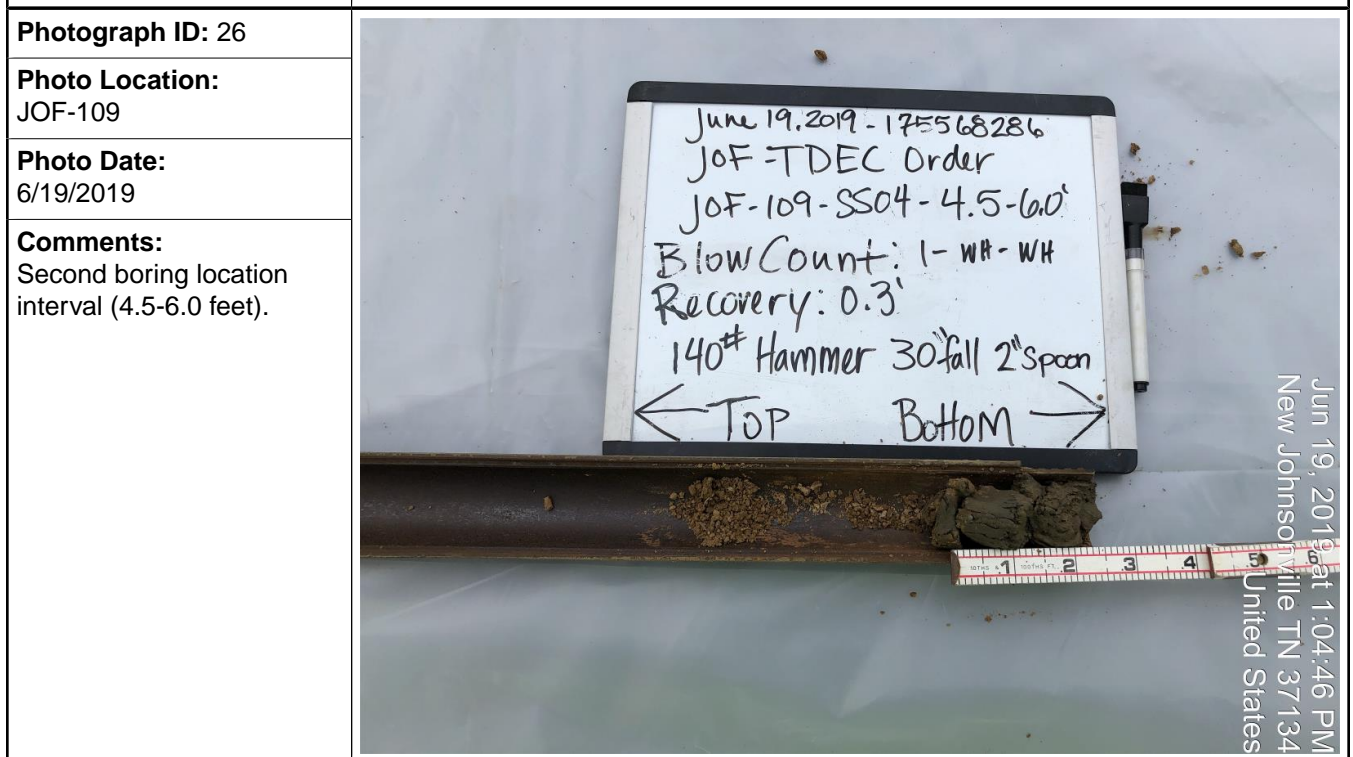 Photograph ID: 26
Photo Location:
JOF-109
Photo Date:
6/19/2019
Comments:
Second boring location
interval (4.5-6.0 feet).
June 19.2019-175568286
JOF-TDEC Order
JOF-109-SS04-4.5-6.0'
Blow Count: 1-WH-WH
Recovery: 0.3'
140# Hammer 30"fall 2"Spoon
← TOP BOTTOM →
10THS & 1 100THS FT. 2 3 4 5 6
Jun 19, 2019 at 1:04:46 PM
New Johnsonville TN 37134
United States